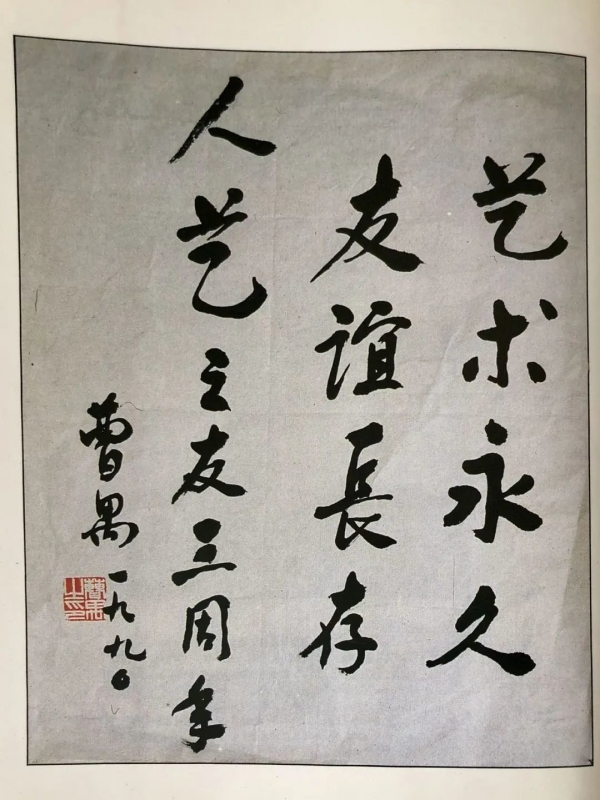 艺术永久
友谊長存
人艺之友三周年
曹禺 一九九〇
曹禺之印